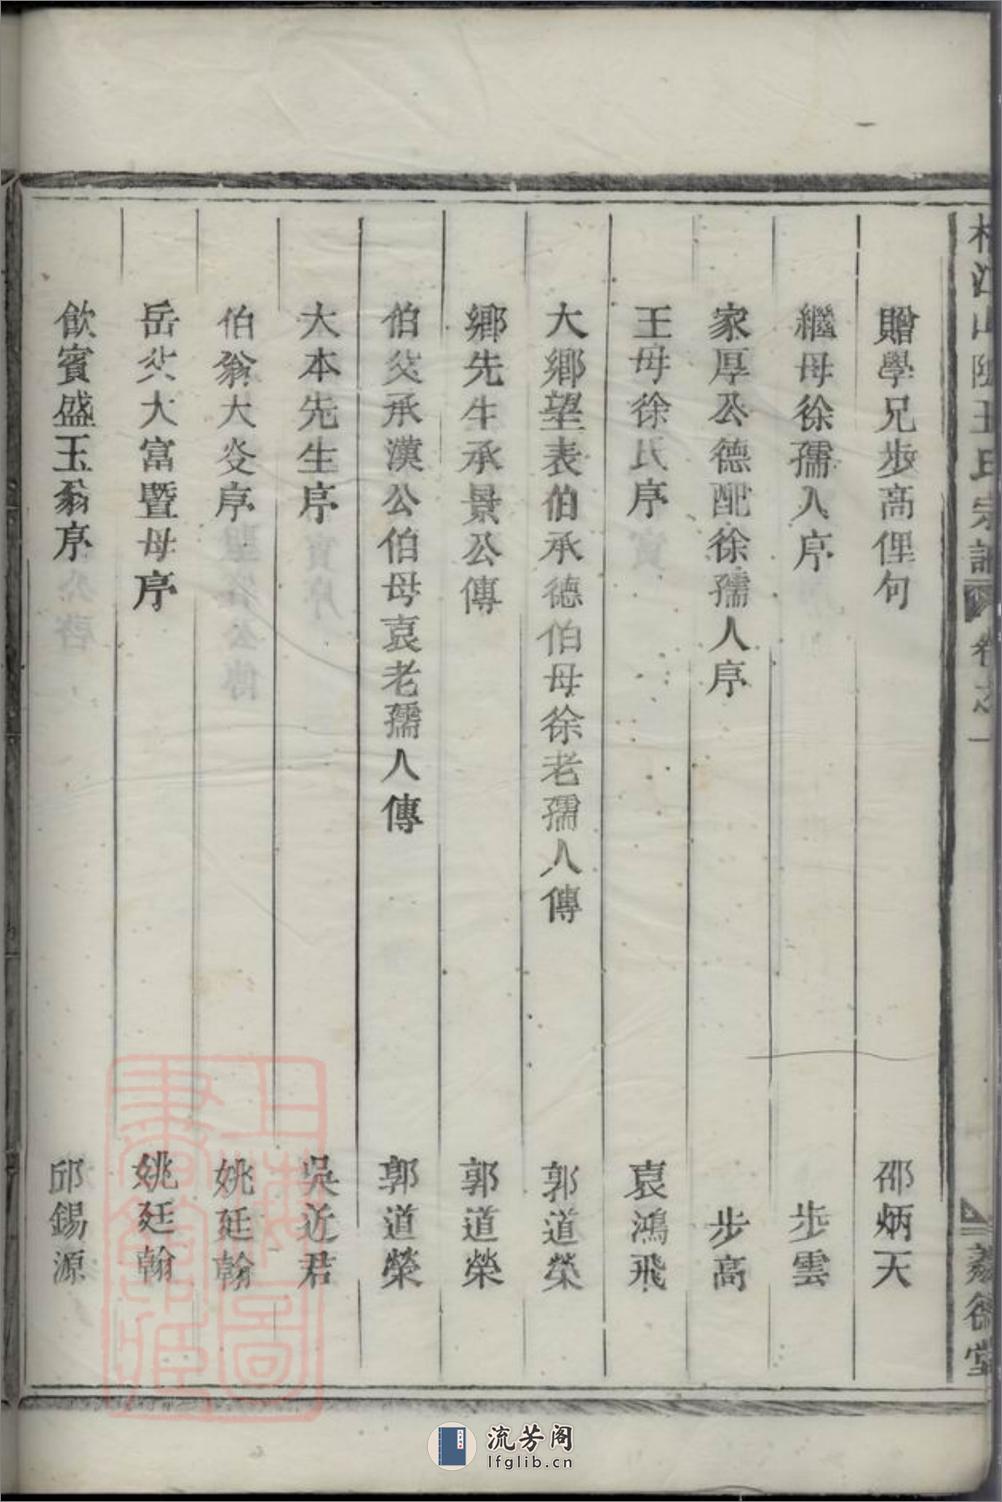 江山陰王氏宗譜 卷之一 二 義德堂
贈學兄步高俚句 邵炳天
繼母徐孺人序 步雲
家厚公德配徐孺人序 步高
王母徐氏序 袁鴻飛
大鄉望表伯承德伯母徐老孺人傳 郭道榮
鄉先生承景公傳 郭道榮
伯父承漢公伯母袁老孺人傳 郭道榮
大本先生序 吳近君
伯翁大㕛序 姚廷翰
岳父大富暨母序 姚廷翰
飲賓盛玉翁序 邱錫源
流芳阁
lfglib.cn